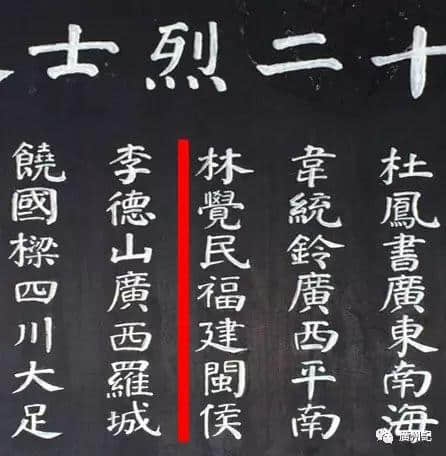 十二烈士
杜鳳書廣東南海
韋統鈴廣西平南
林覺民福建閩侯
李德山廣西羅城
饒國樑四川大足
廣州記